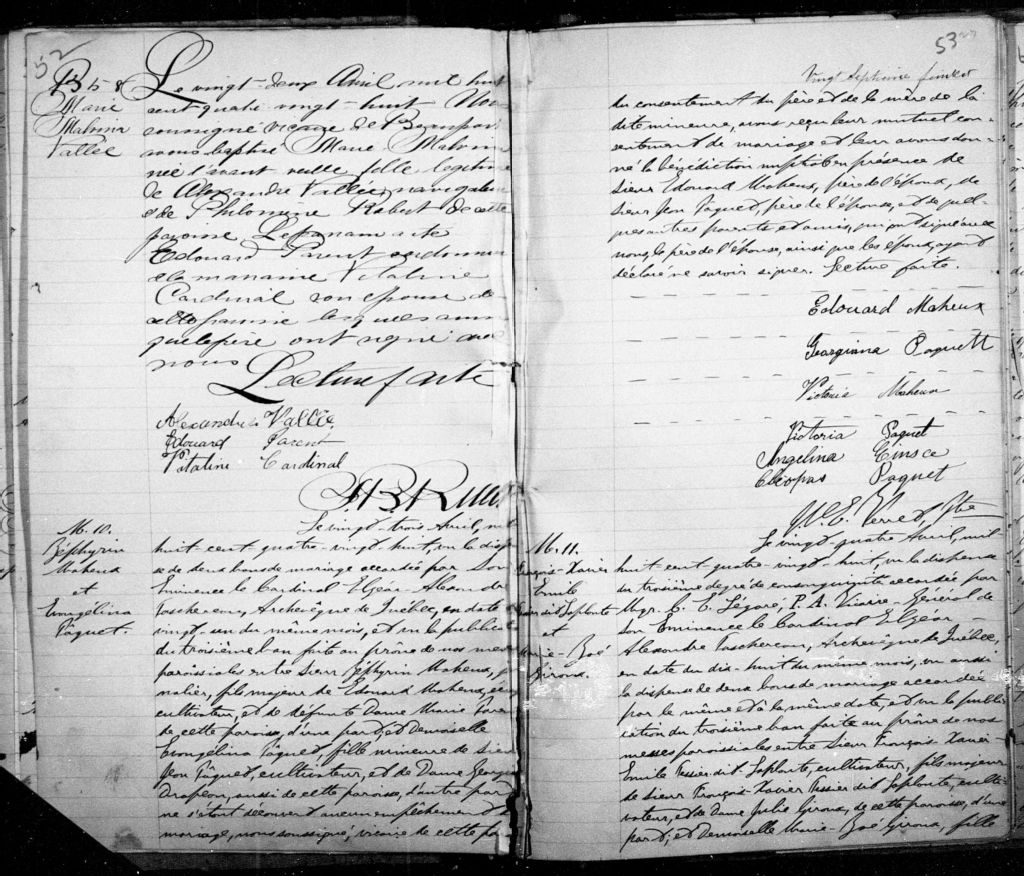 52
B 58
Marie
Malvina
Vallée
Le vingt-deux Avril mil huit
cent-quatre-vingt-huit Nous
soussigné vicaire de Beauport
avons baptisé Marie Malvina
née l'avant veille fille legitime
de Alexandre Vallée, navigateur
et de Philomène Robert de cette
paroisse. Le parrain a été
Edouard Parent
et la marraine Vitaline
Cardinal son épouse de
cette paroisse lesquels ainsi
que le père ont signé avec
nous Lecture faite
Alexandre Vallée
Edouard Parent
Vitaline Cardinal
M. 10.
Zéphyrin
Maheux
et
Evangélina
Pâquet.
Le vingt-trois Avril, mil
huit-cent-quatre-vingt-huit, vu la dispen
se de deux bans de mariage accordée par Son
Eminence le Cardinal Elzéar-Alexandre
Taschereau, Archevêque de Québec, en date du
vingt-un du même mois, et vu la publication
du troisième ban faite au prône de nos messes
paroissiales entre Sieur Zéphyrin Maheux, jour
nalier, fils majeur de Edouard Maheux,
cultivateur, et de défunte Dame Marie
de cette paroisse, d'une part; et Demoiselle
Evangélina Pâquet, fille mineure de Sieur
Jean Pâquet, cultivateur, et de Dame
Drapeau, aussi de cette paroisse, d'autre part
ne s'étant découvert aucun empêchement
mariage, nous soussigné, vicaire de cette pa
53
Vingt septième feuillet
du consentement du père et de la mère de la
dite mineure, avons reçu leur mutuel con-
sentement de mariage et leur avons don-
né la bénédiction nuptiale en présence de
Sieur Edouard Maheux, père de l'époux, de
Sieur Jean Pâquet, père de l'épouse, et de quel-
ques autres parents et amis, qui ont signé avec
nous, le père de l'épouse, ainsi que les époux, ayant
déclaré ne savoir signer. Lecture faite.
Edouard Maheux
Georgiana Paquett
Victoria Maheux
Victoria Paquet
Angelina
Cléopas Paquet
M. 11.
François-Xavier
Emile
Tessier dit Laplante
et
Marie-Zoé
Giroux.
Le vingt-quatre Avril, mil
huit-cent-quatre-vingt-huit, vu la dispense
du troisième degré de consanguinité accordée par
Mgr. C. E. Légaré, P. A. Vicaire-Général de
Son Eminence le Cardinal Elzéar-
Alexandre Taschereau, Archevêque de Québec,
en date du dix-huit du même mois, vu aussi
la dispense de deux bans de mariage accordée
par le même et à la même date, et vu la publi-
cation du troisième ban faite au prône de nos
messes paroissiales entre Sieur François Xavier-
Emile Tessier dit Laplante, cultivateur, fils majeur
de Sieur François-Xavier Tessier dit Laplante, culti-
vateur, et de Dame Julie Giroux, de cette paroisse, d'une
part; et Demoiselle Marie-Zoé Giroux, fille